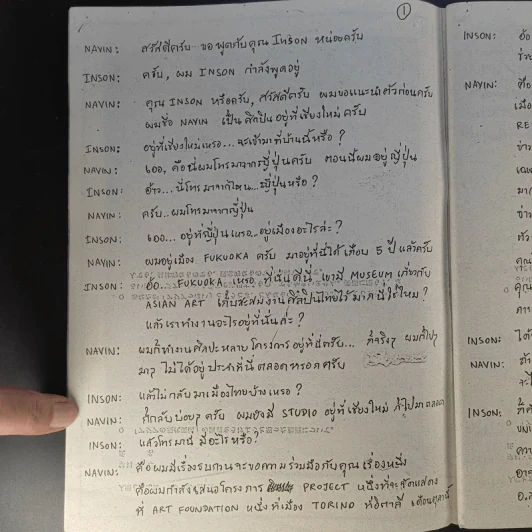 ①
NAVIN: สวัสดีครับ ขอพูดกับคุณ INSON หน่อยครับ
INSON: ครับ, ผม INSON กำลังพูดอยู่
NAVIN: คุณ INSON หรือครับ, สวัสดีครับ ผมขอแนะนำตัวก่อนครับ
ผมชื่อ NAVIN เป็นศิลปินอยู่ที่เชียงใหม่ครับ
INSON: อยู่ที่เชียงใหม่เหรอ... จะเข้ามาที่บ้านนี้หรือ?
NAVIN: เออ, คือนี่ผมโทรมาจากญี่ปุ่นครับ ตอนนี้ผมอยู่ญี่ปุ่น
INSON: อ้าว... นี่โทรมาจากไหน...ญี่ปุ่นหรือ?
NAVIN: ครับ..ผมโทรมาจากญี่ปุ่น
INSON: เออ... อยู่ที่ญี่ปุ่นเหรอ..อยู่เมืองอะไรล่ะ?
NAVIN: ผมอยู่เมือง FUKUOKA ครับ มาอยู่ที่นี่ได้เกือบ 5 ปี แล้วครับ
INSON: อ้อ... FUKUOKA เหรอ ที่นั่นดีนี่ เขามี MUSEUM เกี่ยวกับ
ASIAN ART เก็บสะสมงานศิลปินไทยไว้มากนี่ใช่ไหม?
แล้วเราทำงานอะไรอยู่ที่นั่นล่ะ?
NAVIN: ผมก็ทำงานศิลปะหลายโครงการอยู่ที่นี่ครับ... ก็จริงๆ ผมก็ไปๆ
มาๆ ไม่ได้อยู่ประจำที่นี่ตลอดหรอกครับ
INSON: แล้วไม่กลับมาเมืองไทยบ้างเหรอ?
NAVIN: ก็กลับบ่อยๆ ครับ ผมยังมี STUDIO อยู่ที่เชียงใหม่ ก็ไปมาตลอด
INSON: แล้วโทรมานี่ มีอะไรหรือ?
NAVIN: คือผมมีเรื่องรบกวนจะขอความร่วมมือกับคุณ เรื่องหนึ่ง
คือผมกำลังเสนอโครงการ PROJECT หนึ่งที่จะจัดแสดง
ที่ ART FOUNDATION หนึ่ง ที่เมือง TORINO ที่อิตาลี
INSON:
NAVIN:
INSON:
NAVIN:
INSON: